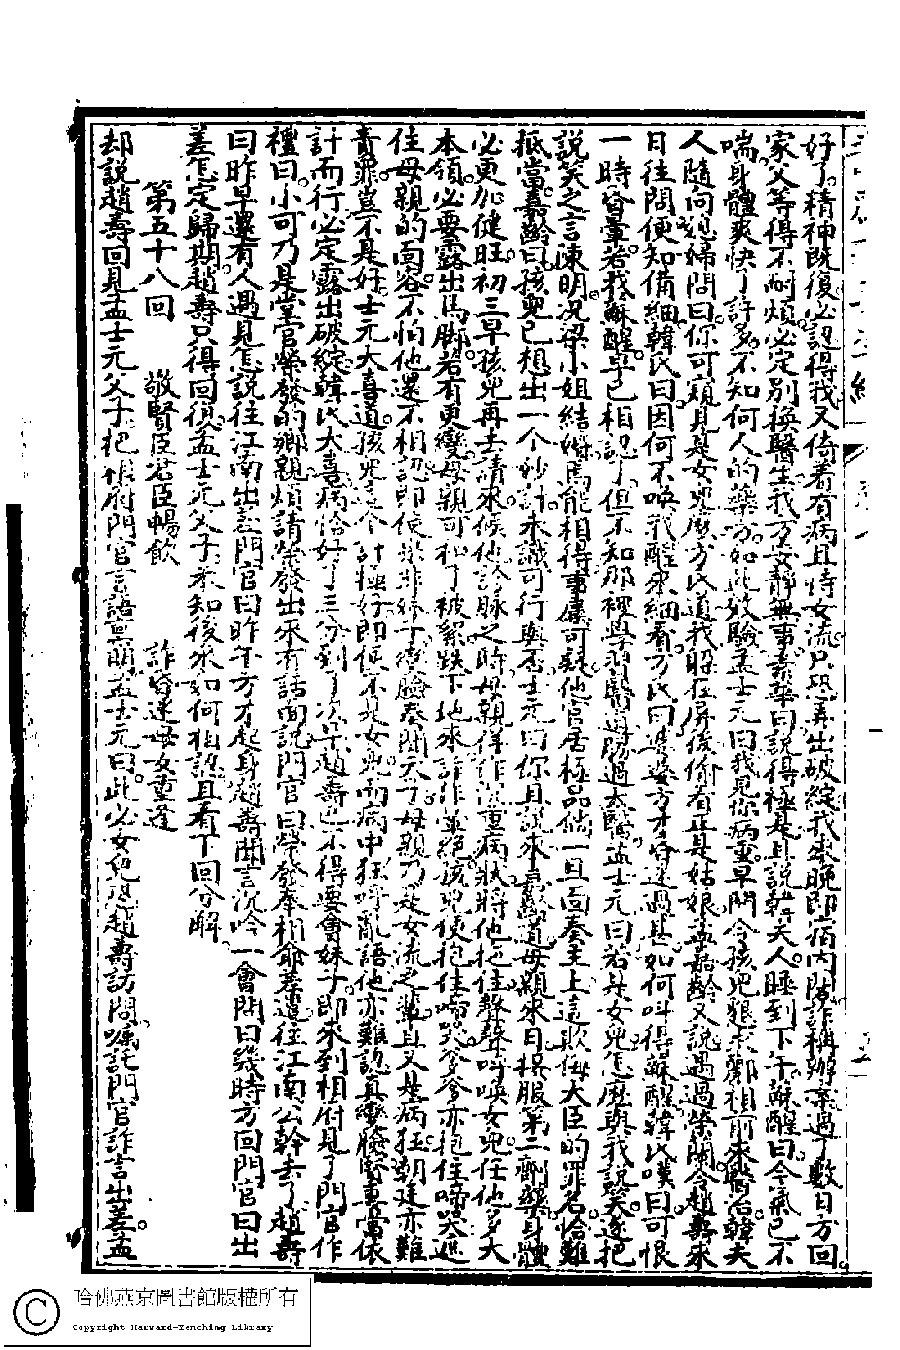 好了精神既復必認得我又倚着有病且恃女流只恐弄出破綻我本晚即宿內閣詐稱辦事過了數日方回
家父等得不耐煩必定別換醫生我方安靜無事素華曰說得極是且說韓夫人睡到下午蘇醒曰今氣已不
喘身體爽快了許多不知何人的藥方如此效驗孟士元曰我見你病重早間令孩兒懇求鄺相前來醫治韓夫
人隨向媳婦問曰你可窺見是女兒麼方氏道我躲在屏後偷看正是姑娘孟嘉齡又說遇過榮蘭令趙壽來
日往問便知備細韓氏曰因何不喚我醒來細看方氏曰婆婆方才昏迷過甚如何叫得蘇醒韓氏嘆曰可恨
一時昏暈若我蘇醒早已相認了但不知那裡學習醫道勝過太醫孟士元曰若是女兒怎麼與我說笑遂把
說笑之言陳明況梁小姐結婚焉能相得事屬可疑他官居極品倘一旦面奏主上這欺侮大臣的罪名恰難
抵當嘉齡曰孩兒已想出一个妙計未識可行與否士元曰你且說來嘉齡道母親來日再服第二劑藥身體
必更加健旺初三早孩兒再去請來候他診脉之時母親佯作沉重病狀將他抱住聲聲呼喚女兒任他多大
本領必要露出馬脚若有更變母親可松了被絮跌下地來詐作氣絕孩兒便抱住啼哭爹爹亦抱住啼哭遮
住母親的面容不怕他還不相認即使果非妹子變臉奏聞天子母親乃是女流之輩且又是病狂朝廷亦難
責罪豈不是好士元大喜道孩兒這个計極好即便不是女兒而病中狂呼亂語他亦難認真變臉賢妻當依
計而行必定露出破綻韓氏大喜病恰好了三分到了次早趙壽巴不得要會妹子即來到相府見了門官作
禮曰小可乃是堂官榮發的鄉親煩請榮發出來有話面說門官曰榮發奉相爺差遣往江南公幹去了趙壽
曰昨早還有人遇見怎說往江南出差門官曰昨午方才起身趙壽聞言沉吟一會問曰幾時方回門官曰出
差怎定歸期趙壽只得回復孟士元父子未知後來如何相認且看下回分解
第五十八回　敬賢臣君臣暢飲　詐昏迷母女重逢
却說趙壽回見孟士元父子把相府門官言語具明孟士元曰此必女兒恐趙壽訪問囑託門官詐言出差孟
哈佛燕京圖書館版權所有
Copyright Harvard-Yenching Library